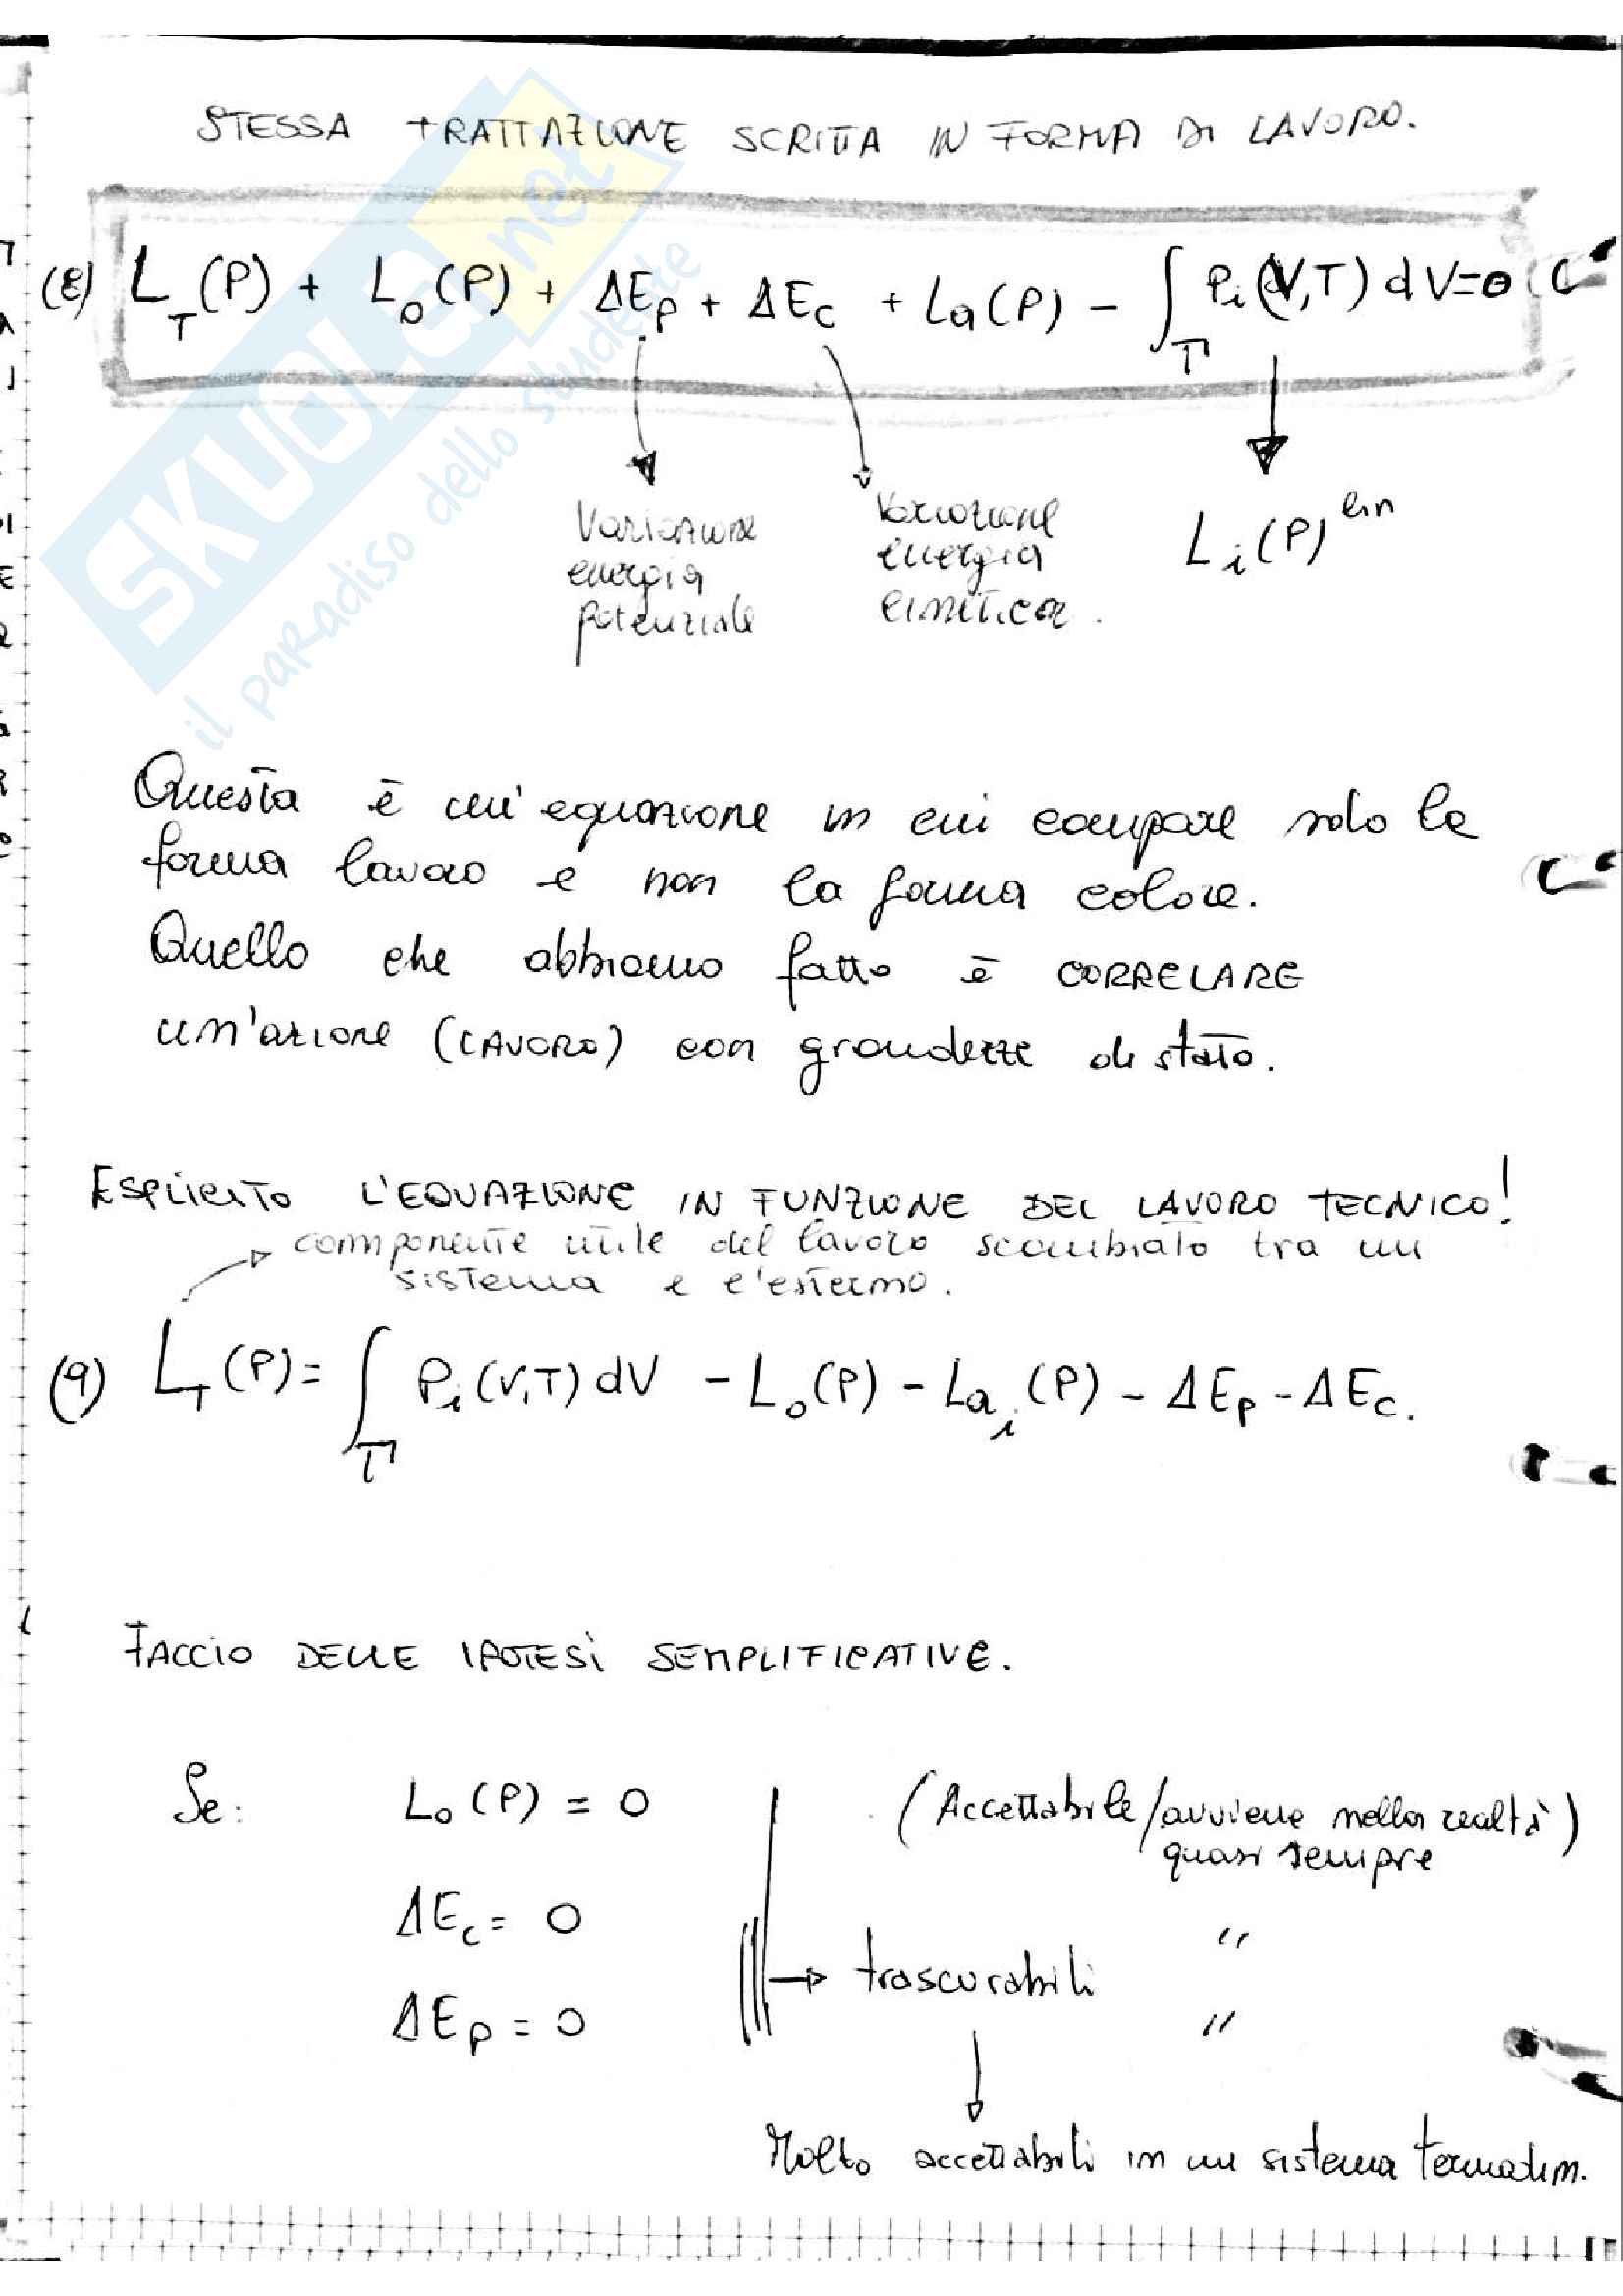 STESSA TRATTAZIONE SCRITTA IN FORMA DI LAVORO.
SKUOLA.net
il paradiso dello studente
(8) L_T(P) + L_o(P) + ΔE_p + ΔE_c + La(P) - ∫_Γ P_i(V,T) dV = 0
Variazione energia potenziale
Variazione energia cinetica.
L_i(P)
Questa è un'equazione in cui compare solo la
forma lavoro e non la forma calore.
Quello che abbiamo fatto è CORRELARE
un'azione (LAVORO) con grandezze di stato.
ESPLICITO L'EQUAZIONE IN FUNZIONE DEL LAVORO TECNICO!
componente utile del lavoro scambiato tra un
sistema e l'esterno.
(9) L_T(P) = ∫_Γ P_i(V,T) dV - L_o(P) - La_i(P) - ΔE_p - ΔE_c.
FACCIO DELLE IPOTESI SEMPLIFICATIVE.
Se: L_o(P) = 0 (Accettabile/avviene nella realtà)
quasi sempre
ΔE_c = 0 "
→ trascurabili
ΔE_p = 0 "
Molto accettabili in un sistema termodin.